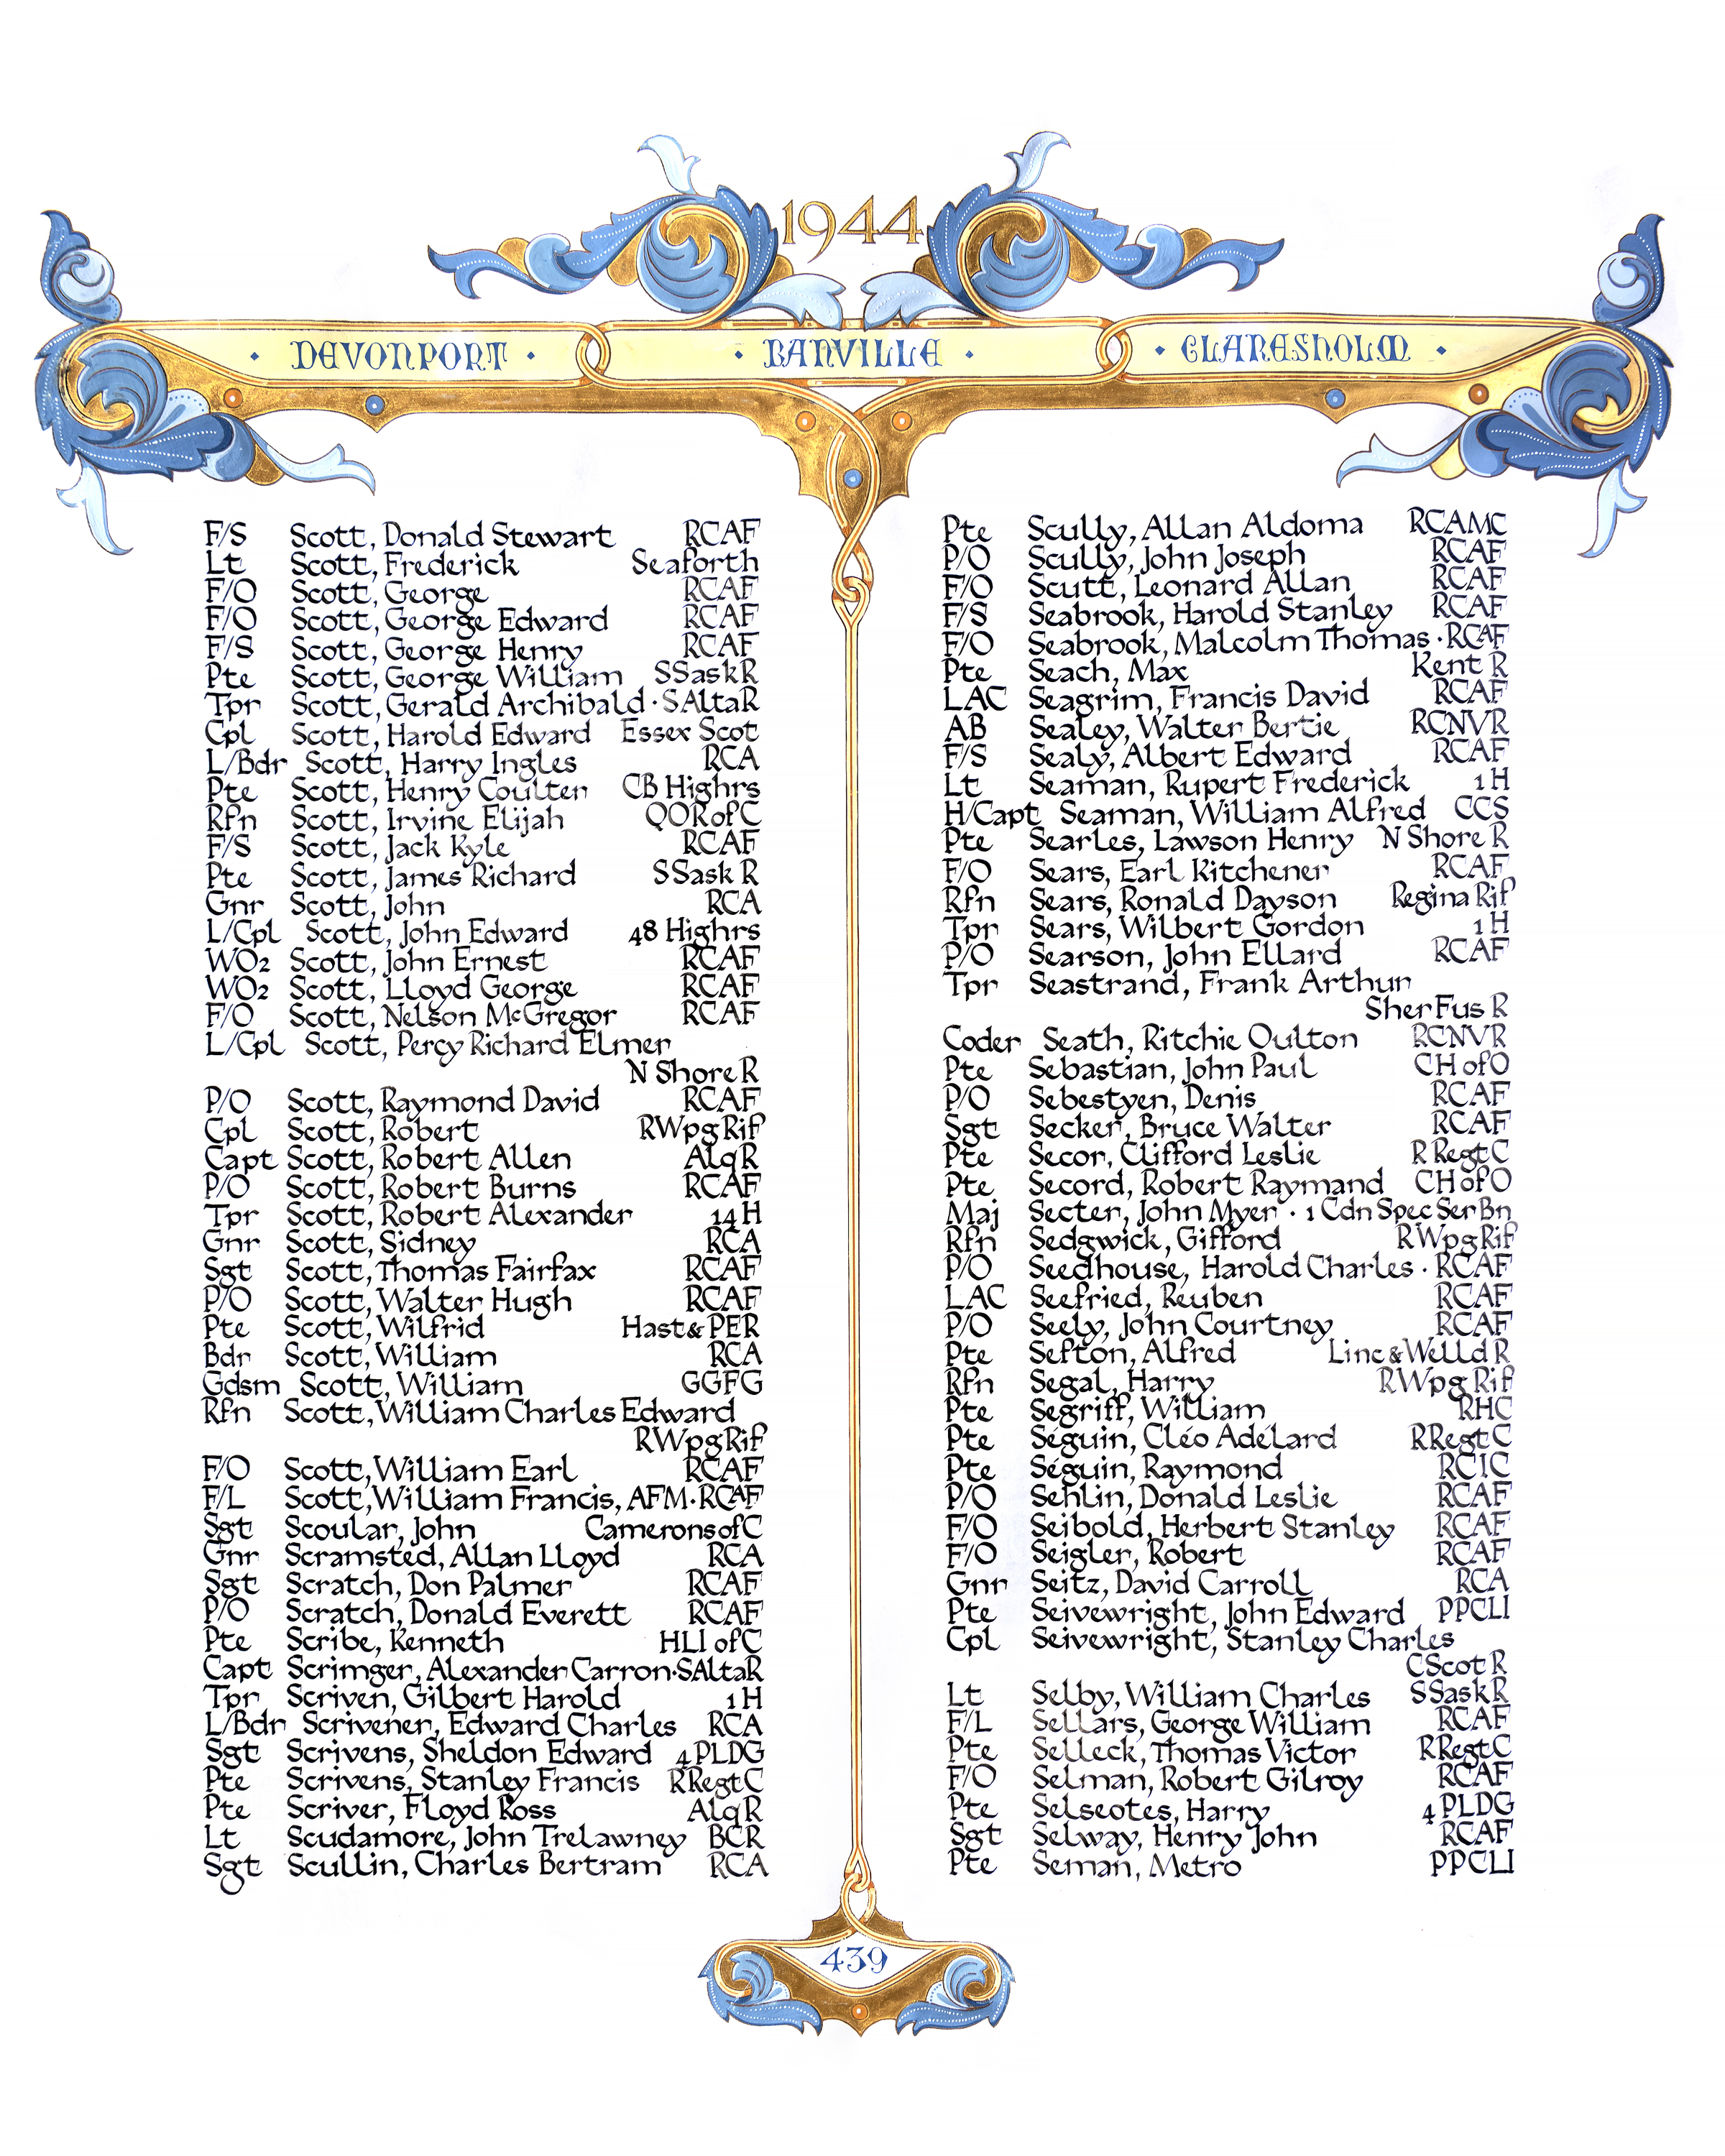 1944
DEVONPORT · BANVILLE · CLARESHOLM
F/S Scott, Donald Stewart RCAF
Lt Scott, Frederick Seaforth
F/O Scott, George RCAF
F/O Scott, George Edward RCAF
F/S Scott, George Henry RCAF
Pte Scott, George William SSaskR
Tpr Scott, Gerald Archibald · SAltaR
Cpl Scott, Harold Edward Essex Scot
L/Bdr Scott, Harry Ingles RCA
Pte Scott, Henry Coulter CB Highrs
Rfn Scott, Irvine Elijah QOR of C
F/S Scott, Jack Kyle RCAF
Pte Scott, James Richard SSask R
Gnr Scott, John RCA
L/Cpl Scott, John Edward 48 Highrs
WO2 Scott, John Ernest RCAF
WO2 Scott, Lloyd George RCAF
F/O Scott, Nelson McGregor RCAF
L/Cpl Scott, Percy Richard Elmer
N Shore R
P/O Scott, Raymond David RCAF
Cpl Scott, Robert RWpgRif
Capt Scott, Robert Allen AlqR
P/O Scott, Robert Burns RCAF
Tpr Scott, Robert Alexander 14 H
Gnr Scott, Sidney RCA
Sgt Scott, Thomas Fairfax RCAF
P/O Scott, Walter Hugh RCAF
Pte Scott, Wilfrid Hast & PER
Bdr Scott, William RCA
Gdsm Scott, William GGFG
Rfn Scott, William Charles Edward
RWpgRif
F/O Scott, William Earl RCAF
F/L Scott, William Francis, AFM · RCAF
Sgt Scoular, John Camerons of C
Gnr Scramsted, Allan Lloyd RCA
Sgt Scratch, Don Palmer RCAF
P/O Scratch, Donald Everett RCAF
Pte Scribe, Kenneth HLI of C
Capt Scrimger, Alexander Carron · SAltaR
Tpr Scriven, Gilbert Harold 1 H
L/Bdr Scrivener, Edward Charles RCA
Sgt Scrivens, Sheldon Edward 4 PLDG
Pte Scrivens, Stanley Francis RRegtC
Pte Scriver, Floyd Ross AlqR
Lt Scudamore, John Trelawney BCR
Sgt Scullin, Charles Bertram RCA
Pte Scully, Allan Aldoma RCAMC
P/O Scully, John Joseph RCAF
F/O Scutt, Leonard Allan RCAF
F/S Seabrook, Harold Stanley RCAF
F/O Seabrook, Malcolm Thomas · RCAF
Pte Seach, Max Kent R
LAC Seagrim, Francis David RCAF
AB Sealey, Walter Bertie RCNVR
F/S Sealy, Albert Edward RCAF
Lt Seaman, Rupert Frederick 1 H
H/Capt Seaman, William Alfred CCS
Pte Searles, Lawson Henry N Shore R
F/O Sears, Earl Kitchener RCAF
Rfn Sears, Ronald Dayson Regina Rif
Tpr Sears, Wilbert Gordon 1 H
P/O Searson, John Ellard RCAF
Tpr Seastrand, Frank Arthur
Sher Fus R
Coder Seath, Ritchie Oulton RCNVR
Pte Sebastian, John Paul CH of O
P/O Sebestyen, Denis RCAF
Sgt Secker, Bruce Walter RCAF
Pte Secor, Clifford Leslie R RegtC
Pte Secord, Robert Raymand CH of O
Maj Secter, John Myer · 1 Cdn Spec Ser Bn
Rfn Sedgwick, Gifford RWpgRif
P/O Seedhouse, Harold Charles · RCAF
LAC Seefried, Reuben RCAF
P/O Seely, John Courtney RCAF
Pte Sefton, Alfred Linc & Welld R
Rfn Segal, Harry RWpg Rif
Pte Segriff, William RHC
Pte Séguin, Cléo Adélard RRegtC
Pte Séguin, Raymond RCIC
P/O Sehlin, Donald Leslie RCAF
F/O Seibold, Herbert Stanley RCAF
F/O Seigler, Robert RCAF
Gnr Seitz, David Carroll RCA
Pte Seivewright, John Edward PPCLI
Cpl Seivewright, Stanley Charles
CScot R
Lt Selby, William Charles SSaskR
F/L Sellars, George William RCAF
Pte Selleck, Thomas Victor RRegtC
F/O Selman, Robert Gilroy RCAF
Pte Selseotes, Harry 4 PLDG
Sgt Selway, Henry John RCAF
Pte Seman, Metro PPCLI
439